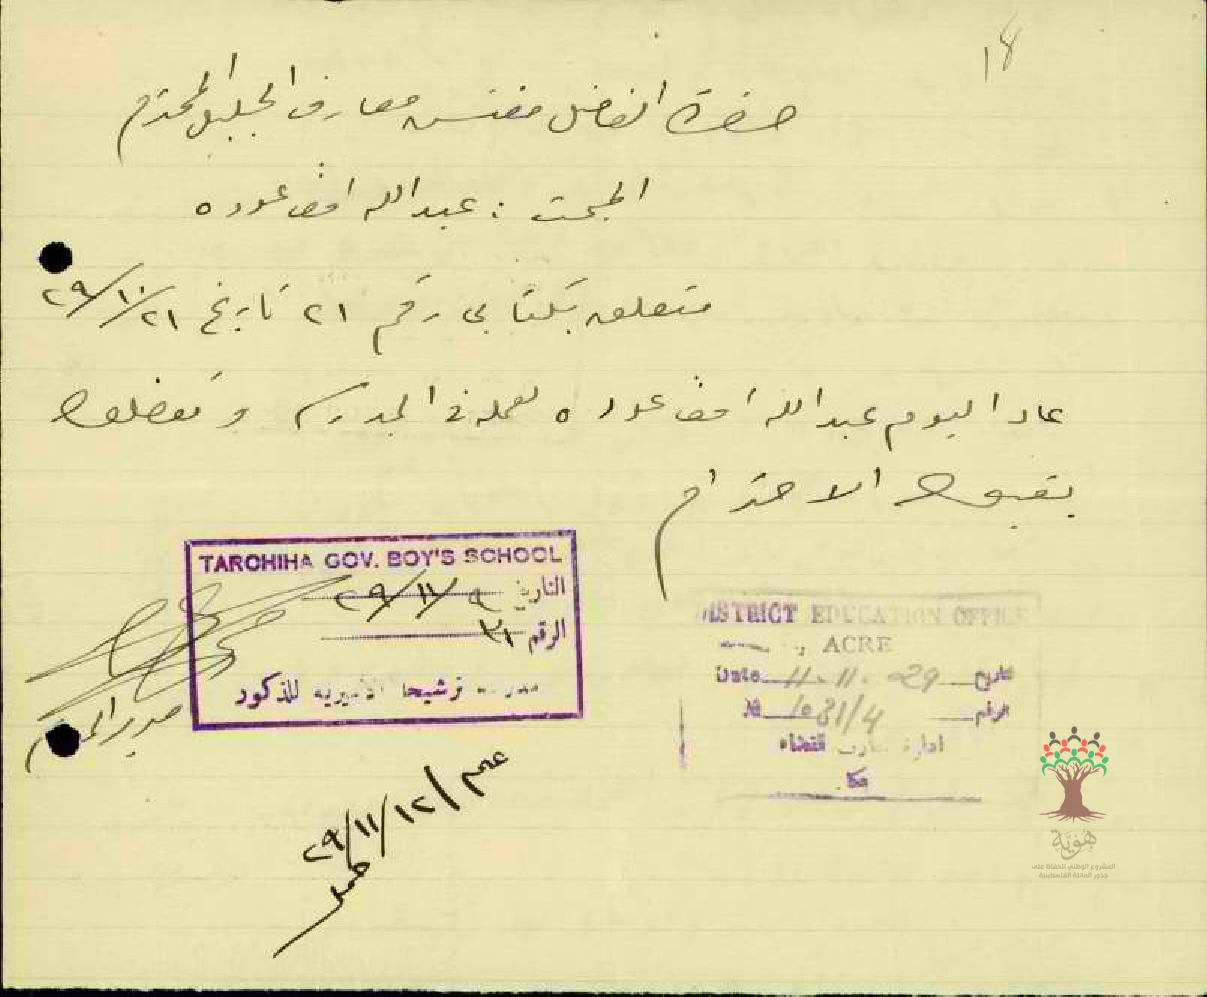 ١٨
حضرة الفاضل مفتش معارف الجليل المحترم
المبحث : عبدالله افندي عوده
متعلقه بكتابي رقم ٢١ تاريخ ٢٩/١٠/٢١
عاد اليوم عبدالله افندي عوده لعمله في المدرسه وتفضلوا
بقبول الاحترام
TARCHIHA GOV. BOY'S SCHOOL
التاريخ ٢٩/١١/٩
الرقم ٣١
مدرسة ترشيحا الاميريه للذكور
مدير
DISTRICT EDUCATION OFFICE
ACRE
Date 11-11-29 تاريخ
№ 1031/4 الرقم
ادارة معارف القضاء
عكا
٢٩/١١/١٢
هوية
المشروع الوطني للحفاظ على
جذور العائلة الفلسطينية